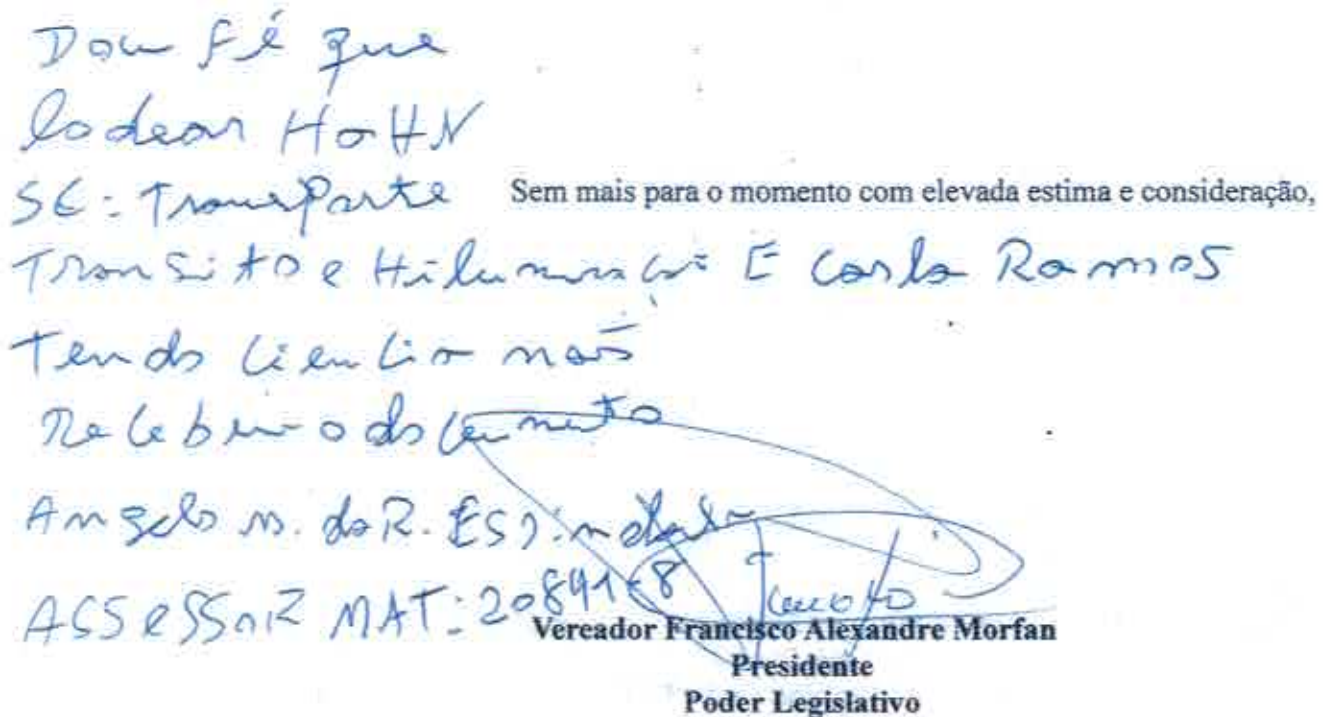 Dou Fé que
Lodear HoHN
SE: TransParte Sem mais para o momento com elevada estima e consideração,
Transito e Hilumina E Carla Ramos
Tendo Ciencia não
Recebeu o documento
Angelo M. da R. ESpindola
ASSeSSoR MAT: 20841-8
Vereador Francisco Alexandre Morfan
Presidente
Poder Legislativo